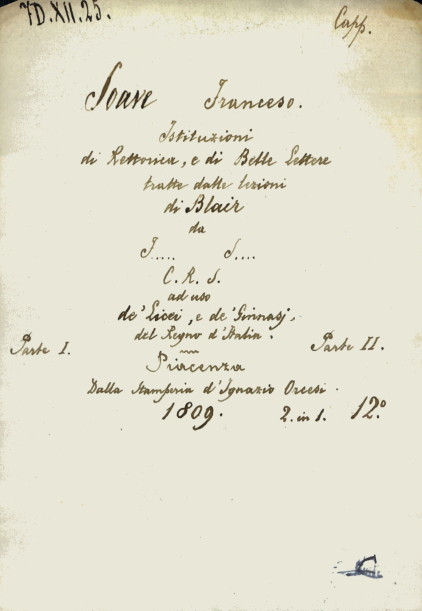 7D.XII.25.
Capp.
Soave Francesco.
Istituzioni
di Rettorica, e di Belle Lettere
tratte dalle lezioni
di Blair
da
F.... S....
C. R. S.
ad uso
de' Licei, e de' Ginnasj,
del Regno d'Italia.
Parte I. Parte II.
Piacenza
Dalla Stamperia d'Ignazio Orcesi.
1809. 2. in 1. 12.º